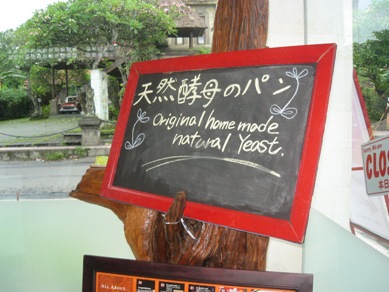 天然酵母のパン
Original home made
natural Yeast.
CLO
本日
ALL ABOUT